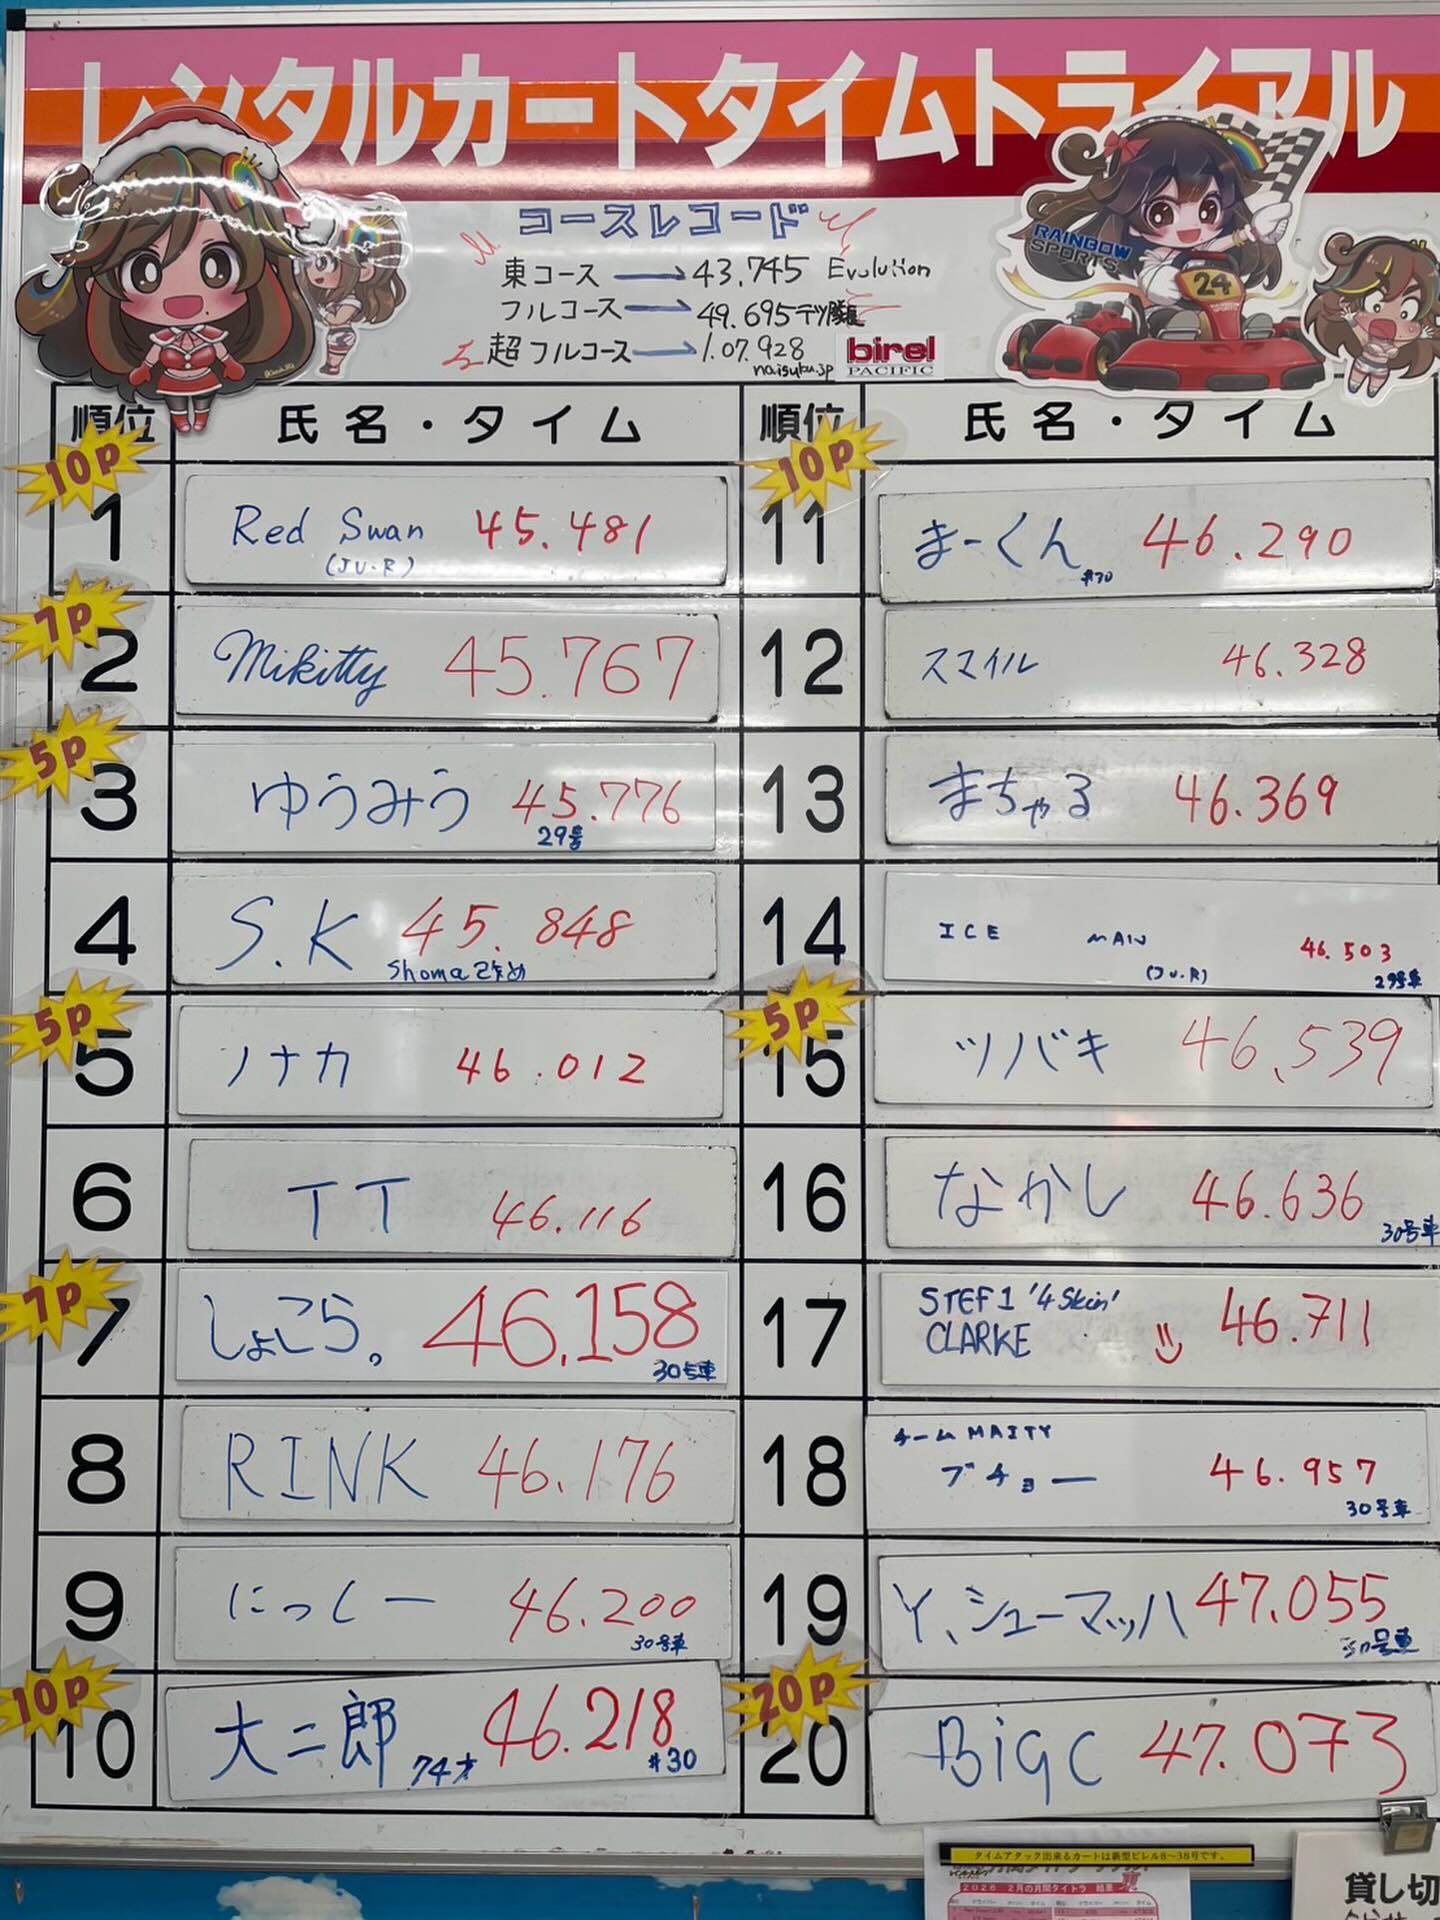 レンタルカートタイムトライアル
コースレコード
東コース → 43.745 Evolution
フルコース → 49.695 テツ隊長
超フルコース → 1.07.928
naisuku.jp
birel
PACIFIC
RAINBOW
SPORTS
24
順位 氏名・タイム
10P
1 Red Swan 45.481
(JU.R)
7P
2 Mikitty 45.767
5P
3 ゆうみう 45.776
29号
4 S.K 45.848
Shoma改め
5P
5 ノナカ 46.012
6 TT 46.116
7P
7 しょこら。 46.158
30号車
8 RINK 46.176
9 にっしー 46.200
30号車
10P
10 大二郎 74才 46.218
#30
順位 氏名・タイム
10P
11 まーくん 46.290
#30
12 スマイル 46.328
13 まちゃる 46.369
14 ICE MAN 46.503
(JU.R) 29号車
5P
15 ツバキ 46.539
16 なかし 46.636
30号車
17 STEF1 '4 Skin'
CLARKE 46.711
18 チームMAITY
ブチョー 46.957
30号車
19 Y、シューマッハ 47.055
号車
20P
20 BiGC 47.073
タイムアタック出来るカートは新型ビレル8～38号です。
2026 2月の月間タイトラ 結果
貸し切